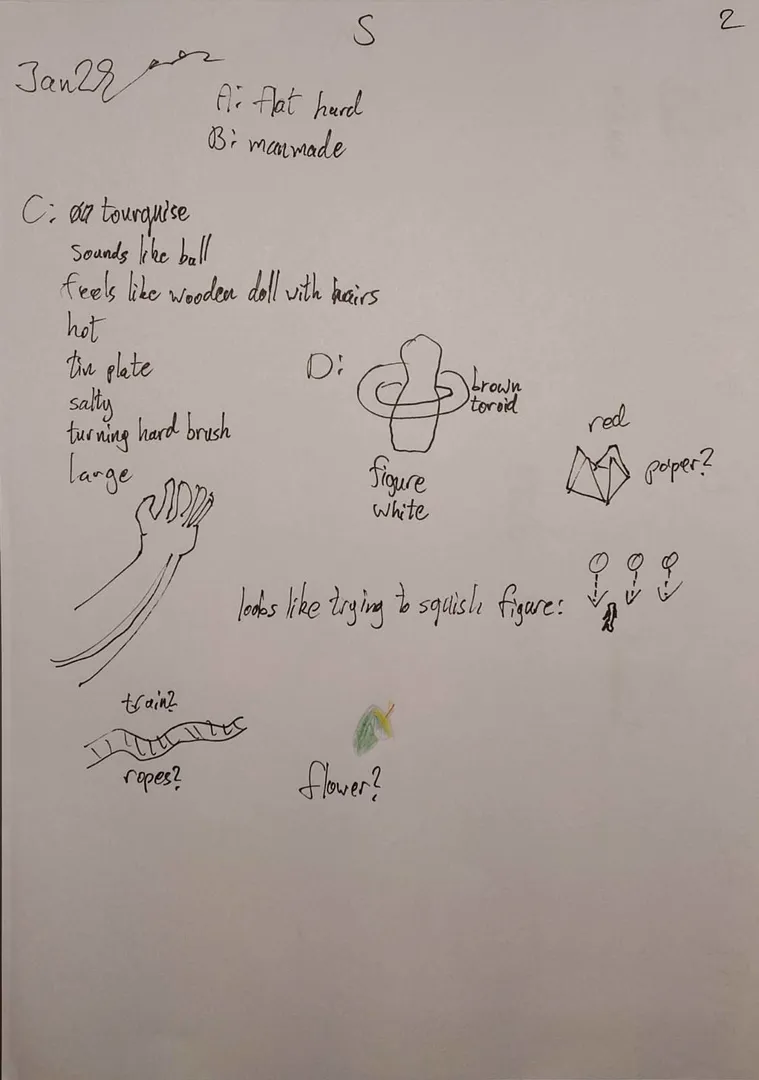 S
2
Jan28
A: flat hard
B: manmade
C: tourquise
sounds like ball
feels like wooden doll with hairs
hot
tin plate
salty
turning hard brush
large
D:
brown
toroid
figure
white
red
paper?
loobs like trying to squish figure:
train?
ropes?
flower?